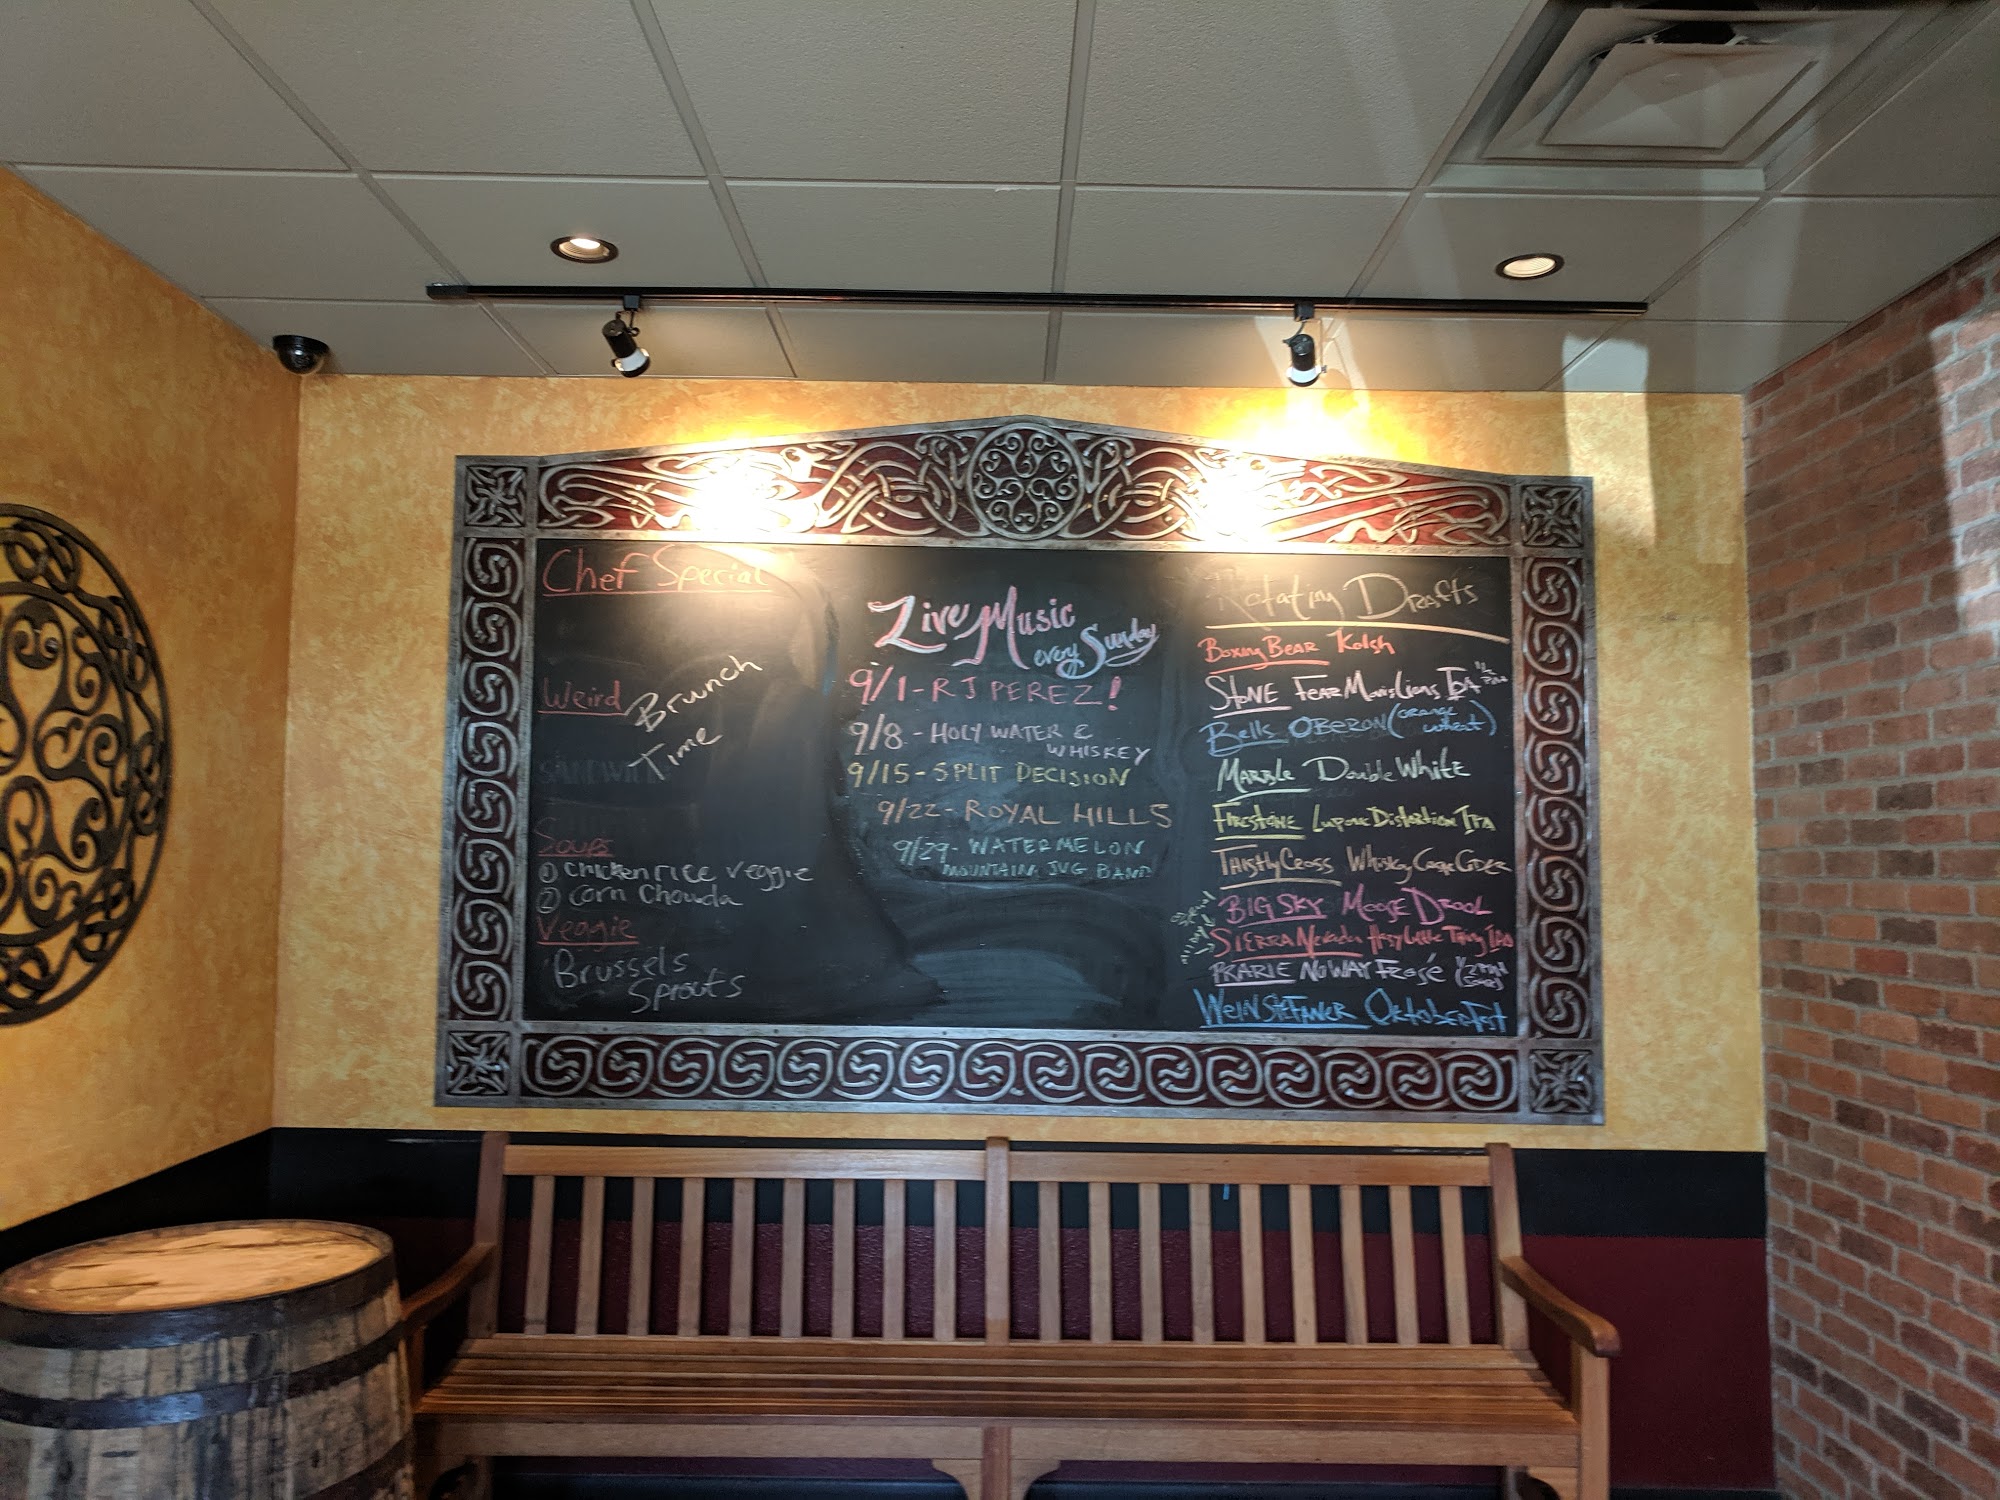 Chef Special
Weird
Brunch
Time
SANDWICH
Soups
① Chicken rice veggie
② Corn Chowda
Veggie
Brussels
Sprouts
Live Music
every Sunday
9/1 - RJ PEREZ!
9/8 - HOLY WATER &
WHISKEY
9/15 - SPLIT DECISION
9/22 - ROYAL HILLS
9/29 - WATERMELON
MOUNTAIN JUG BAND
Rotating Drafts
Boxing Bear Kolsh
STONE FEAR Movie Lions IPA
Bells OBERON (orange
wheat)
MARBLE Double White
FIRESTONE Luponic Distortion IPA
ThistlyCross Whiskey Cask Cider
BIG SKY MOOSE DROOL
SIERRA Nevada Hazy Little Thing IPA
PRARIE NOWAY Frosé
WEINSTEFANER OKtoberFest